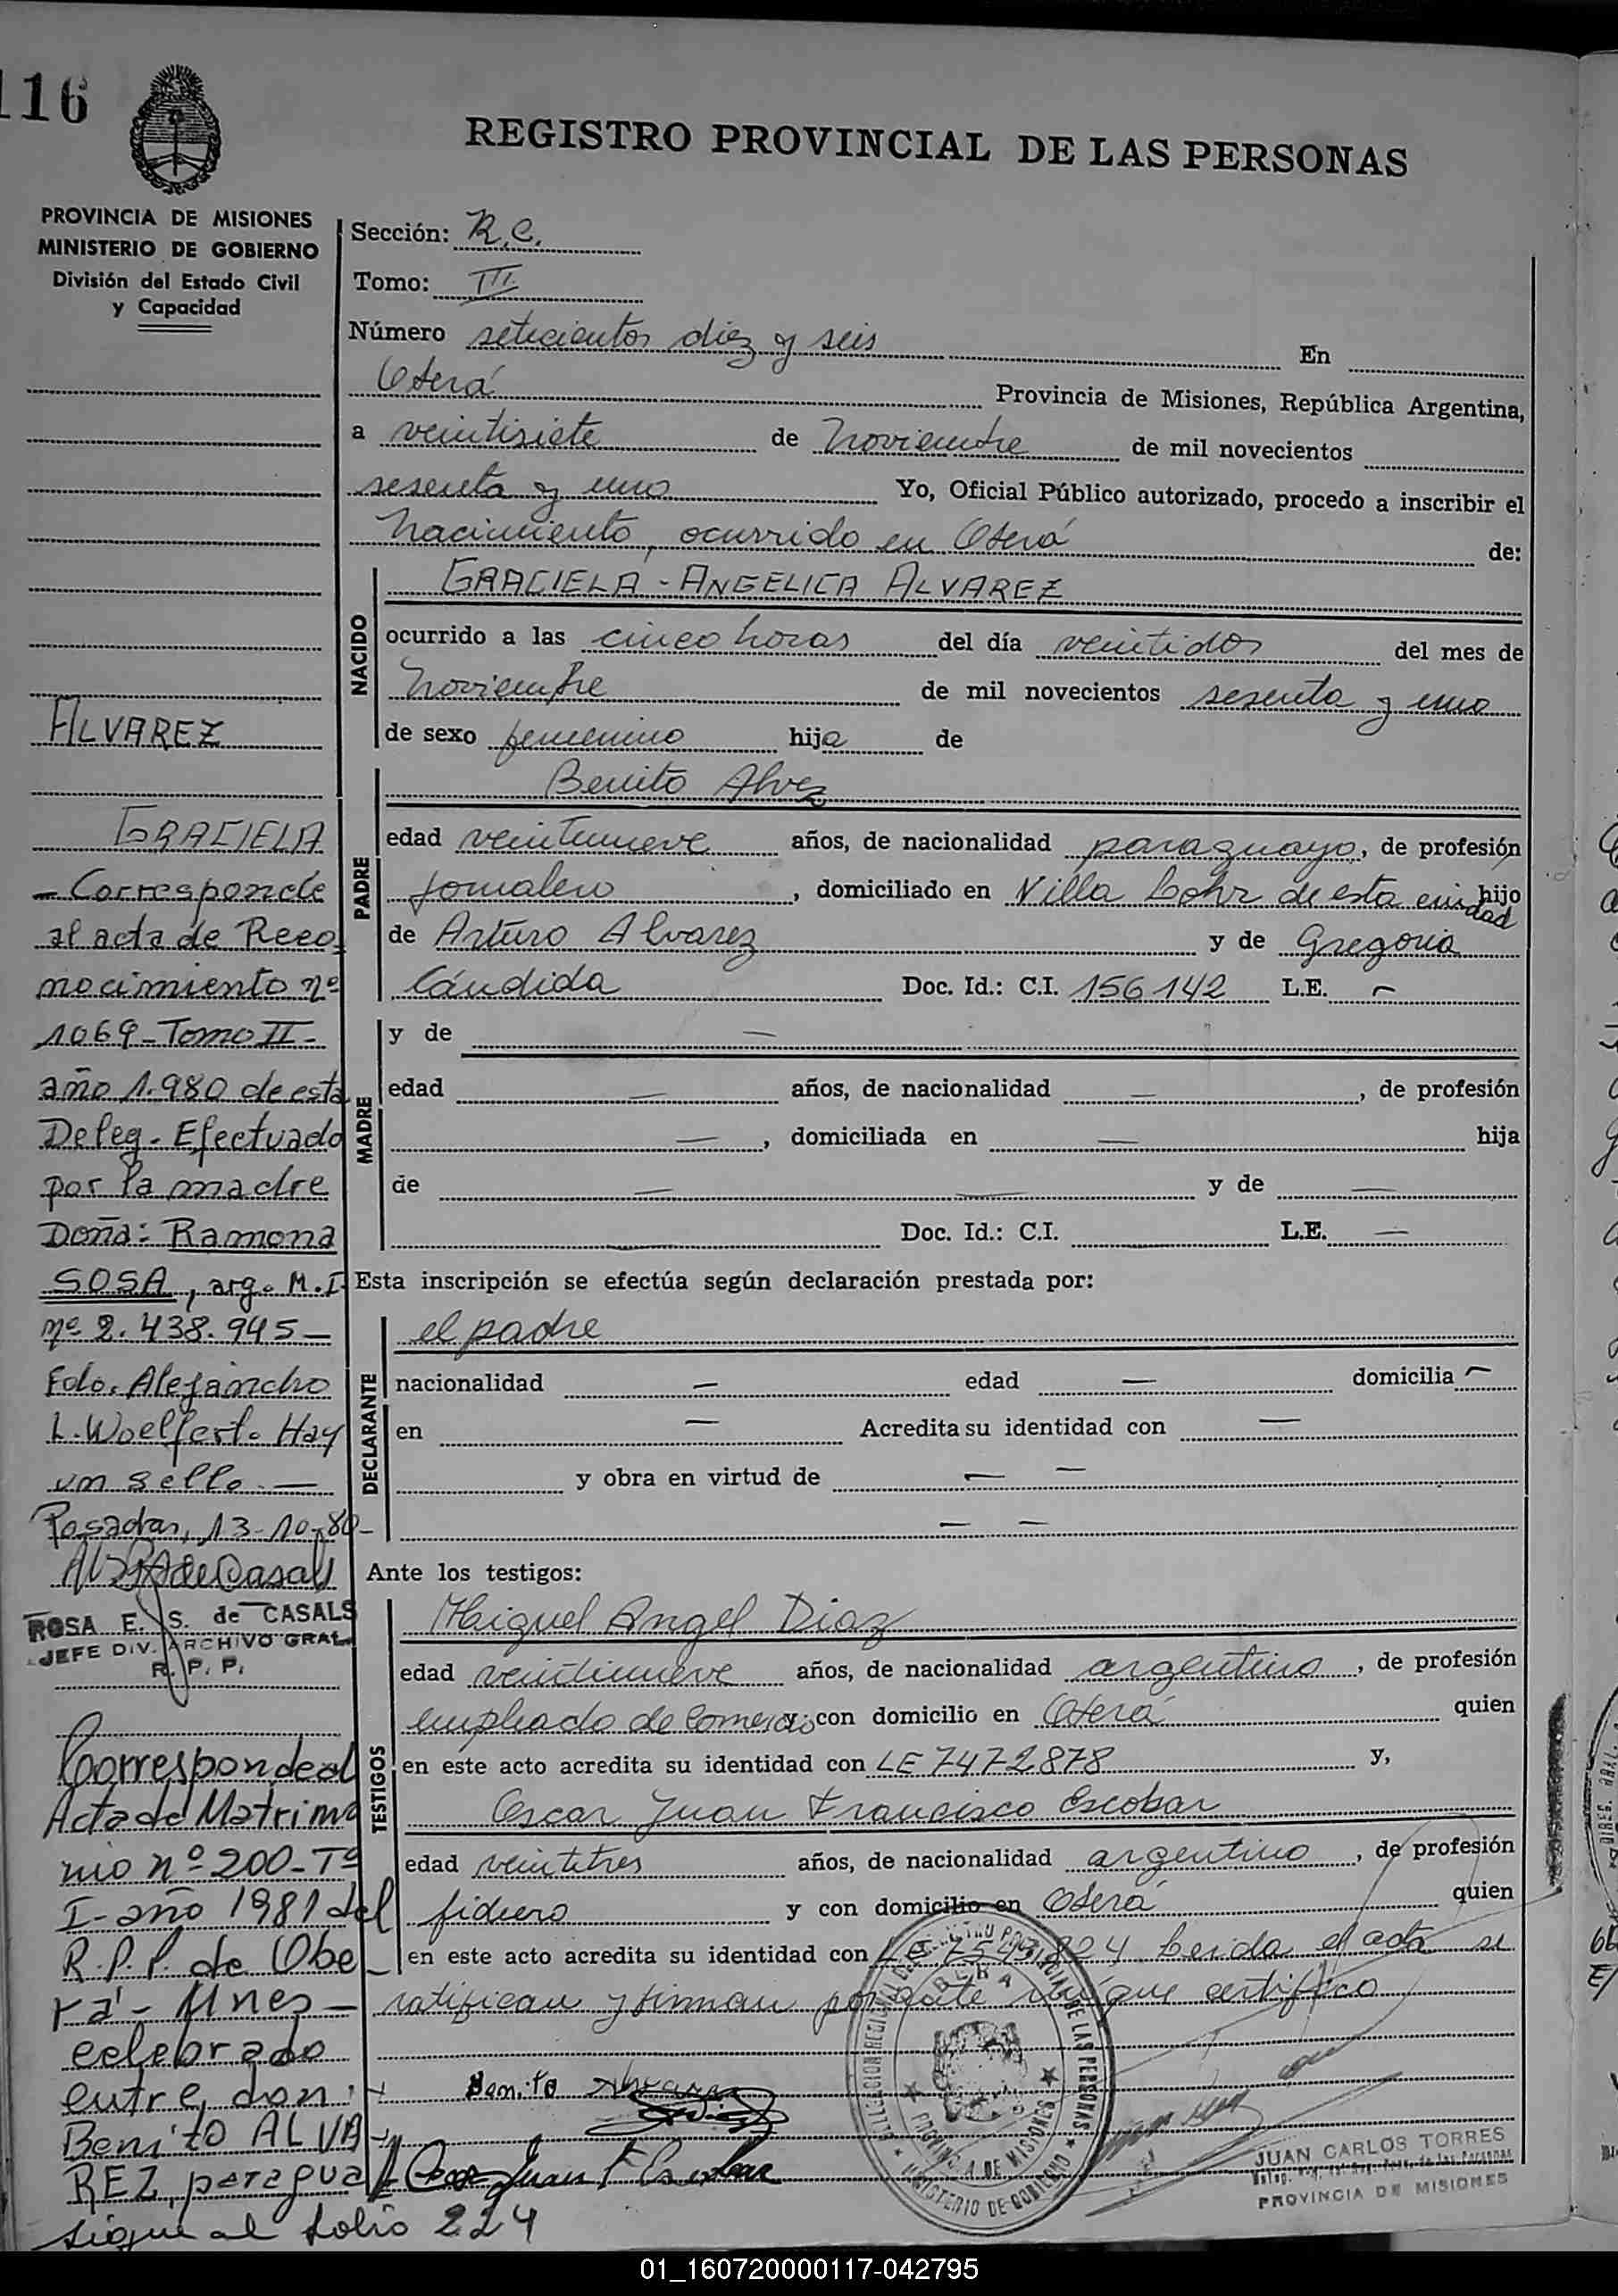 116
REGISTRO PROVINCIAL DE LAS PERSONAS
PROVINCIA DE MISIONES
MINISTERIO DE GOBIERNO
División del Estado Civil
y Capacidad
ALVAREZ
GRACIELA
- Corresponde
al acta de Reco
nocimiento nº
1069 - Tomo II -
año 1.980 de esta
Deleg. Efectuado
por la madre
Doña: Ramona
SOSA, arg. M.I.
nº 2.438.945 -
Fdo. Alejandro
L. Woelfert. Hay
un sello. -
Posadas, 13-10-80-
ROSA E. S. de CASALS
JEFE DIV. ARCHIVO GRAL.
R. P. P.
Corresponde al
Acta de Matrimo
nio nº 200 - Tº
I - año 1981 del
R.P.P. de Obe
rá - Mnes -
celebrado
entre don:
Benito ALVA
REZ, paragua
sigue al folio 224
Sección: R.C.
Tomo: III
Número setecientos diez y seis En
Oberá Provincia de Misiones, República Argentina,
a veintisiete de Noviembre de mil novecientos
sesenta y uno Yo, Oficial Público autorizado, procedo a inscribir el
Nacimiento, ocurrido en Oberá de:
NACIDO
GRACIELA - ANGELICA ALVAREZ
ocurrido a las cinco horas del día veintidos del mes de
Noviembre de mil novecientos sesenta y uno
de sexo femenino hija de
PADRE
Benito Alvez
edad veintinueve años, de nacionalidad paraguayo, de profesión
jornalero, domiciliado en Villa Lohr de esta ciudad hijo
de Arturo Alvarez y de Gregoria
Cándida Doc. Id.: C.I. 156142 L.E. -
MADRE
y de -
edad - años, de nacionalidad -, de profesión
-, domiciliada en - hija
de - y de -
- Doc. Id.: C.I. - L.E. -
Esta inscripción se efectúa según declaración prestada por:
DECLARANTE
el padre
nacionalidad - edad - domicilia -
en - Acredita su identidad con -
y obra en virtud de - -
- -
Ante los testigos:
TESTIGOS
Miguel Angel Diaz
edad veintinueve años, de nacionalidad argentino, de profesión
empleado de Comercio y con domicilio en Oberá quien
en este acto acredita su identidad con LE 7472878 y,
Oscar Juan Francisco Escobar
edad veintitres años, de nacionalidad argentino, de profesión
fidero y con domicilio en Oberá quien
en este acto acredita su identidad con Leida el acta se
ratifican y firman por ante mí que certifico
Benito Alvarez
Oscar Juan F Escobar
DELEGACION REGIONAL DEL REGISTRO PROVINCIAL DE LAS PERSONAS
OBERA
PROVINCIA DE MISIONES
MINISTERIO DE GOBIERNO
JUAN CARLOS TORRES
PROVINCIA DE MISIONES
01_160720000117-042795